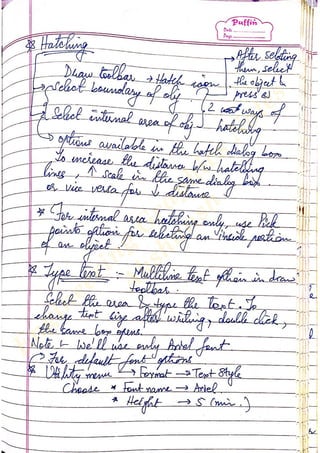 Puffin
Date
Page
* Hatching
Draw toolbar → Hatch icon
→ Select boundary of obj.
→ Select internal area of obj
After selecting
them, select
the object &
press
2 ways of
hatching
→ options available in the hatch dialog box
To increase the distance b/w hatching
lines, ↑ scale in the same dialog box
or vice versa for ↓ distance
* For internal area hatching only, use Pick
points option for selecting an inside portion
of an object.
* Type text :- Multiline text option in draw
toolbar.
Select the area & type the text. To
change text size after writing, double click,
the same box opens.
Note :- We'll use only Ariel font
→ For default font options
* Utility menu → Format → Text Style
Choose * Font name → Ariel
* Height → 5 (min.)